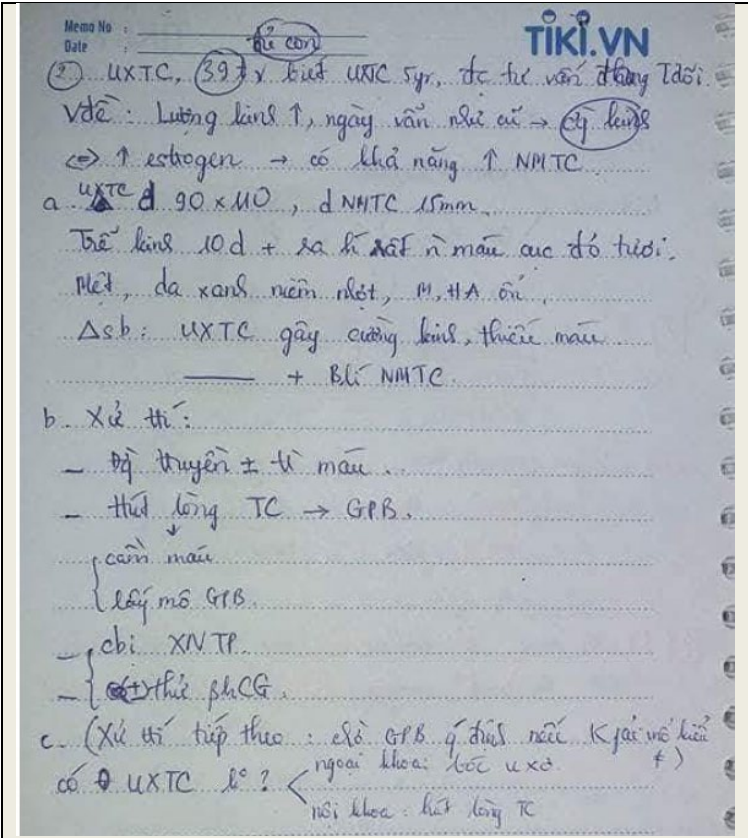 Memo No :
Date :
đủ con
TiKi.VN
② UXTC, 39t, biết UXTC 5yr, đc tư vấn Tdõi.
Vđề: Lượng kinh ↑, ngày vẫn như cũ →
<=> ↑ estrogen → có khả năng ↑ NMTC
a. UXTC d 90 x 110, d NMTC 15mm.
Trễ kinh 10d + ra h rất n máu cục đỏ tươi.
Mệt, da xanh niêm nhợt, M, HA ổn
Δsb: UXTC gây cường kinh, thiếu máu
——— + Blí NMTC.
b. Xử trí:
– truyền ± máu
– Hút lòng TC → GPB.
↓
cầm máu
lấy mô GPB.
– cbi XNTP
– (±) thử βhCG.
c. (Xử trí tiếp theo: chờ GPB
có UXTC k°? ngoại khoa: bóc u xơ.
nội khoa: hút lòng TC